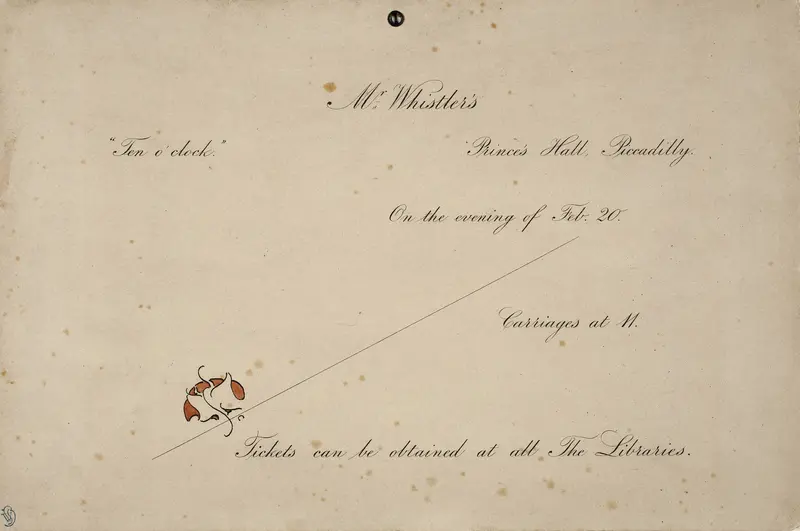 Mr. Whistler's
"Ten o'clock." Prince's Hall, Piccadilly.
On the evening of Feb: 20.
Carriages at 11.
Tickets can be obtained at all The Libraries.